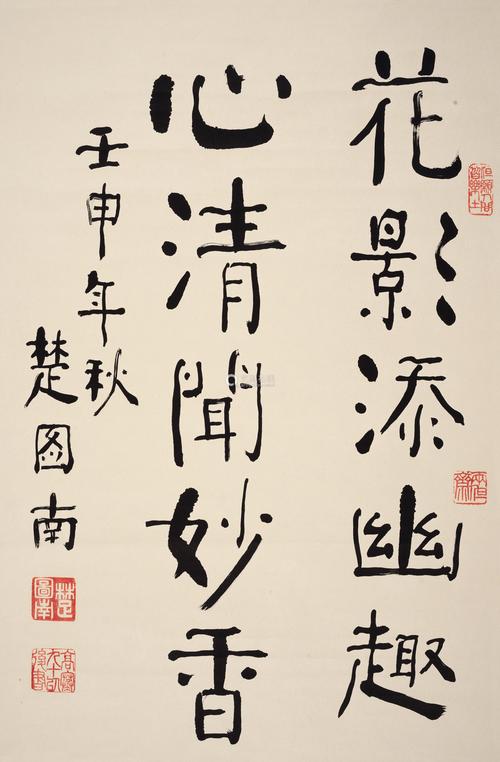 花影添幽趣
心清闻妙香
壬申年秋
楚图南
楚圖南